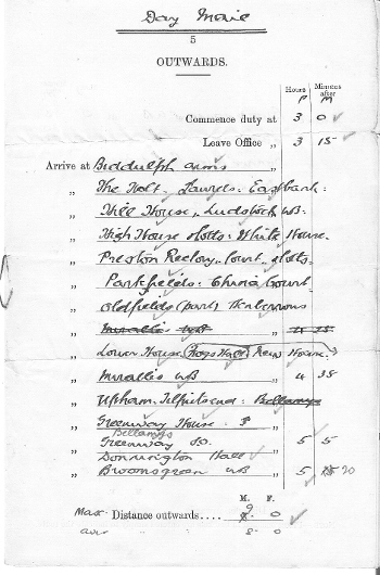 Day Mail
5
OUTWARDS.
Hours Minutes after
P M
Commence duty at 3 0
Leave Office „ 3 15
Arrive at Biddulph Arms „
„ The Holt. Laurels: Eastbank:
„ Hill House, Ludstock WB.
„ High House Cotts: White House.
„ Preston Rectory, Court, Cotts.
„ Parkfields: Chria Court.
„ Oldfields (part)
„ Murallis WB „
„ Lower House Hogs Hall New House.
„ Murallis WB „ 4 35
„ Upham: Tilputsend: Bellamys
„ Greenway House. „
Bellamys
„ Greenway SO. „ 5 5
„ Donnington Hall
„ Broomsgreen WB „ 5 20
M. F.
Max. Distance outwards.... 9 0
aver „ „ 8 0